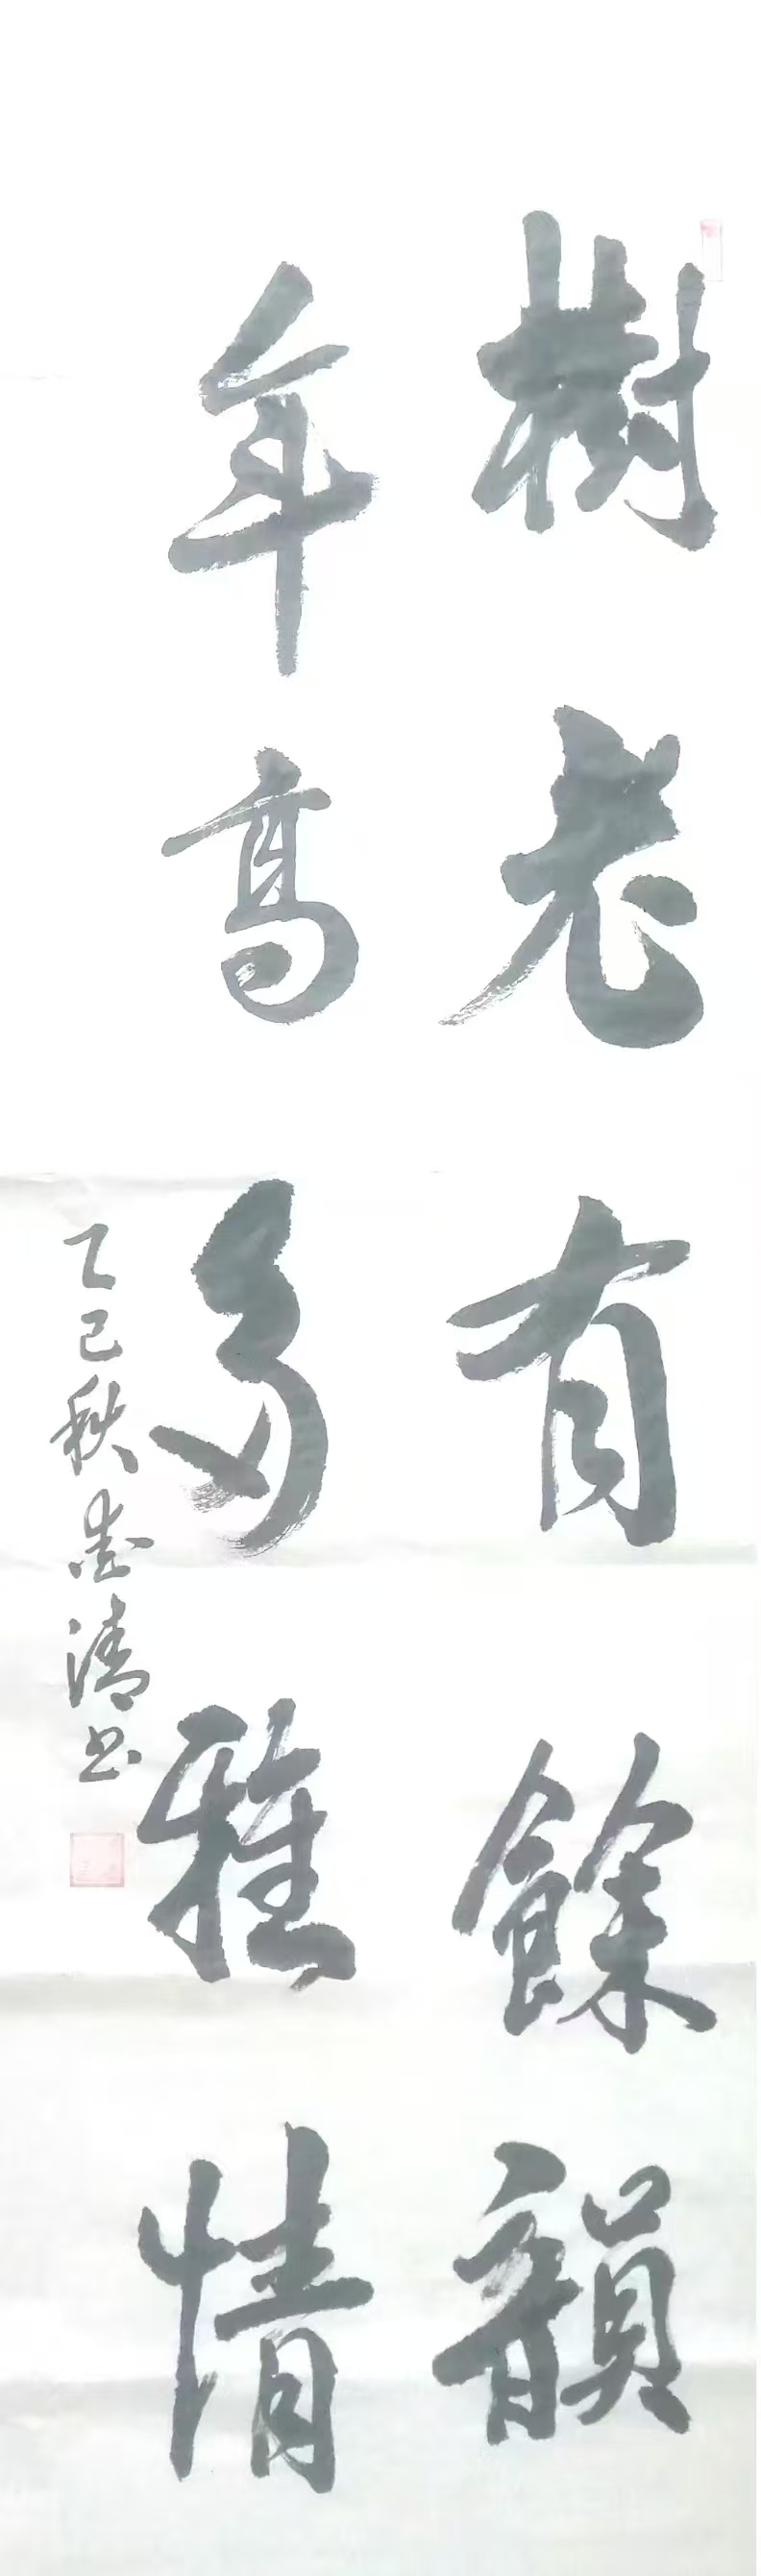 樹老有餘韻
年高多雅情
乙巳秋志清书